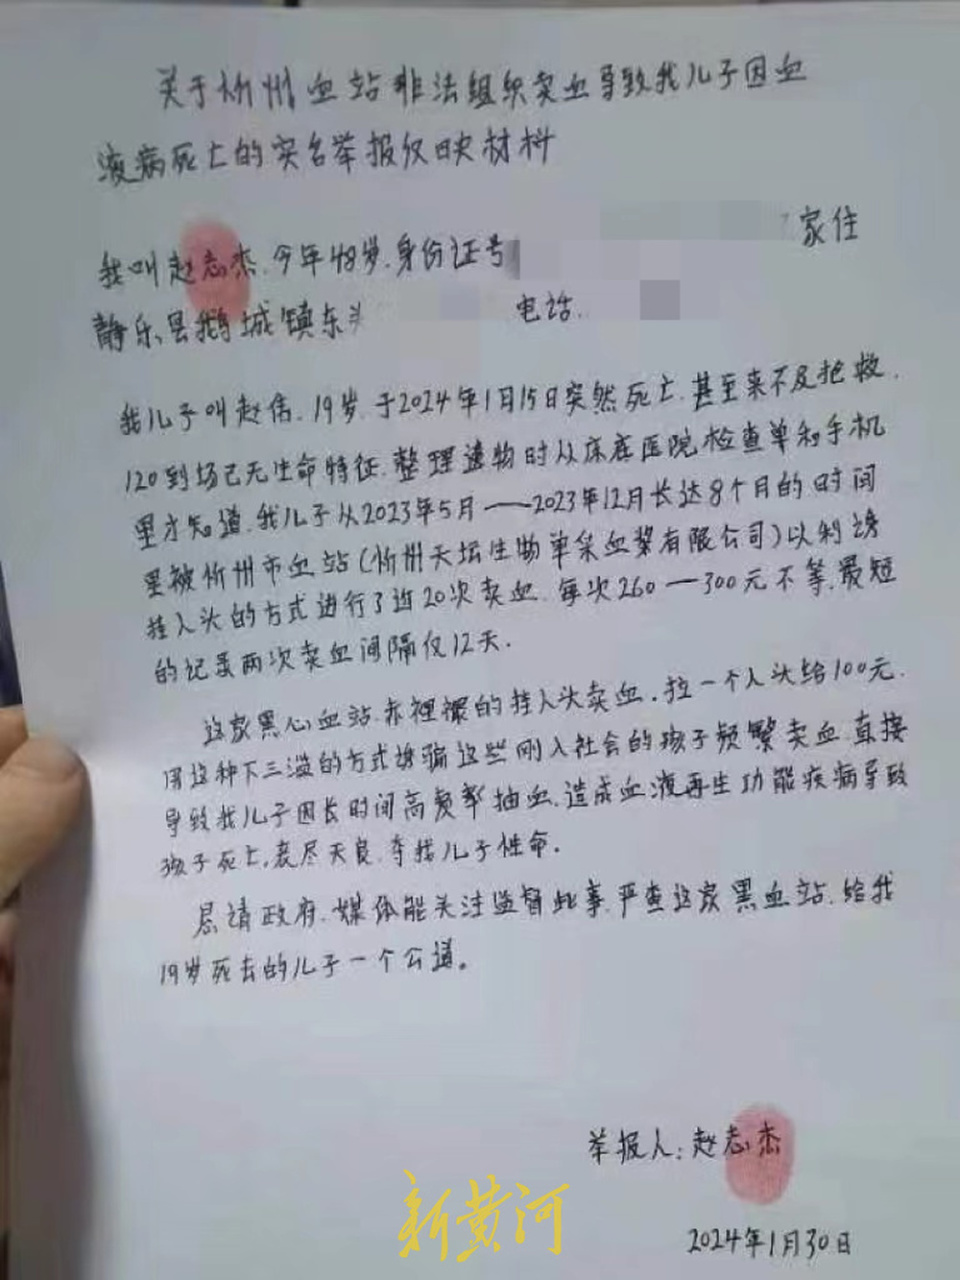 关于忻州血站非法组织卖血导致我儿子因血
液病死亡的实名举报仅映材料
家住
我叫赵志杰.今年48岁.身份证号
静乐县鹅城镇东头
电话.
我儿子叫赵伟.19岁.于2024年1月15日突然死亡.甚至来不及抢救.
120到场已无生命特征.整理遗物时从床底医院检查单和手机
里才知道.我儿子从2023年5月——2023年12月长达8个月的时间
里被忻州市血站(忻州天坛生物单采血浆有限公司)以利诱
挂人头的方式进行了近20次卖血.每次260—300元不等.最短
的记录两次卖血间隔仅12天.
这家黑心血站.赤裡裸的挂人头卖血.拉一个人头给100元.
用这种下三滥的方式诱骗这些刚入社会的孩子频繁卖血.直接
导致我儿子因长时间高频率抽血.造成血液再生功能疾病导致
孩子死亡.丧尽天良.夺我儿子性命.
恳请政府.媒体能关注监督此事.严查这家黑血站.给我
19岁死去的儿子一个公道。
举报人:赵志杰
2024年1月30日
新黄河